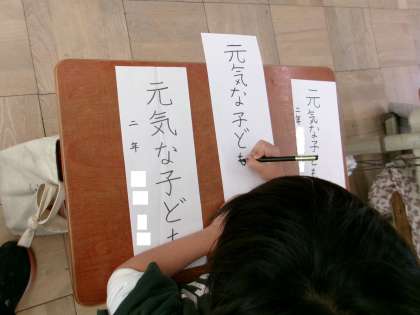 元気な子ども
二年
元気な子ども
元気な子ども
二年